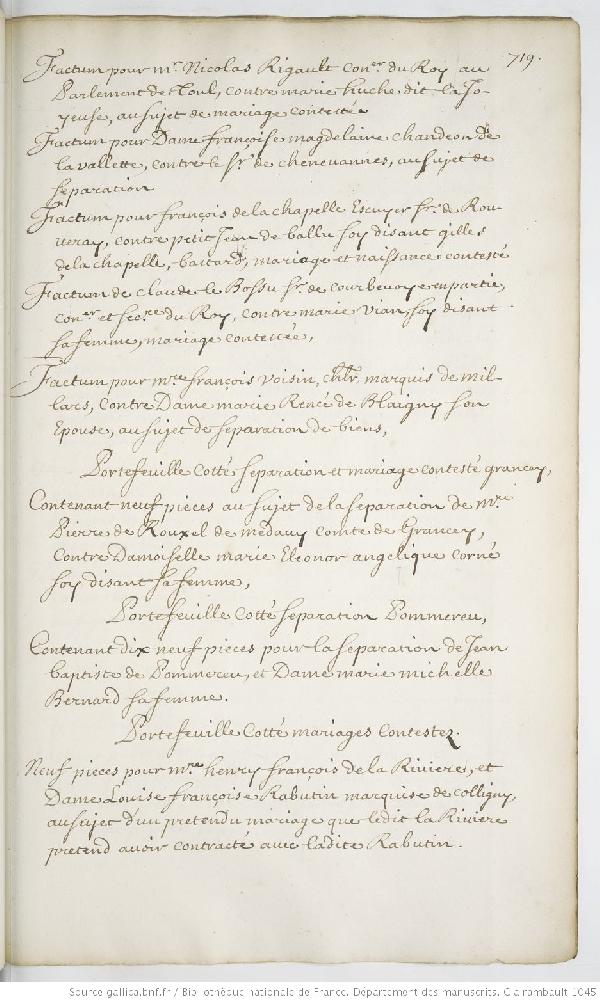 719.
Factum pour mr. Nicolas Rigault Coner. du Roy au
Parlement de Toul, contre marie huche dit la Jo-
yeuse, au sujet de mariage contesté
Factum pour Dame françoise magdelaine chandeon de
la vallette, contre le Sr. de chenevannes, au sujet de
Separation
Factum pour françois de la chapelle Escuyer Sr. de Rou-
veray, contre petit Jean de ballu soy disant gilles
de la chapelle, bastard, mariage et naissance contesté
Factum de claude le Bossu Sr. de Courbevoye en partie,
Coner. et Secre. du Roy, contre marie Vian, soy disant
sa femme, mariage contesté,
Factum pour mre. françois Voisin, chlr. marquis de mil-
lars, Contre Dame marie Renée de Blaigny son
Epouse, au sujet de separation de biens,
Portefeuille Cotté separation et mariage contesté grancey,
Contenant neuf pieces au sujet de la separation de mre.
Pierre de Rouxel de medavy Comte de Grancey,
Contre Damoiselle marie Eleonor angelique Corné
soy disant sa femme,
Portefeuille Cotté separation Pommereu,
Contenant dix neuf pieces pour la separation de Jean
baptiste de Pommereu, et Dame marie michelle
Bernard sa femme.
Portefeuille Cotté mariages Contestez.
Neuf pieces pour mre. henry françois de la Riviere, et
Dame Louise françoise Rabutin marquise de Colligny,
au sujet d'un pretendu mariage que ledit la Riviere
pretend avoir contracté avec ladite Rabutin.
Source gallica.bnf.fr / Bibliothèque nationale de France. Département des manuscrits. Clairambault 1045